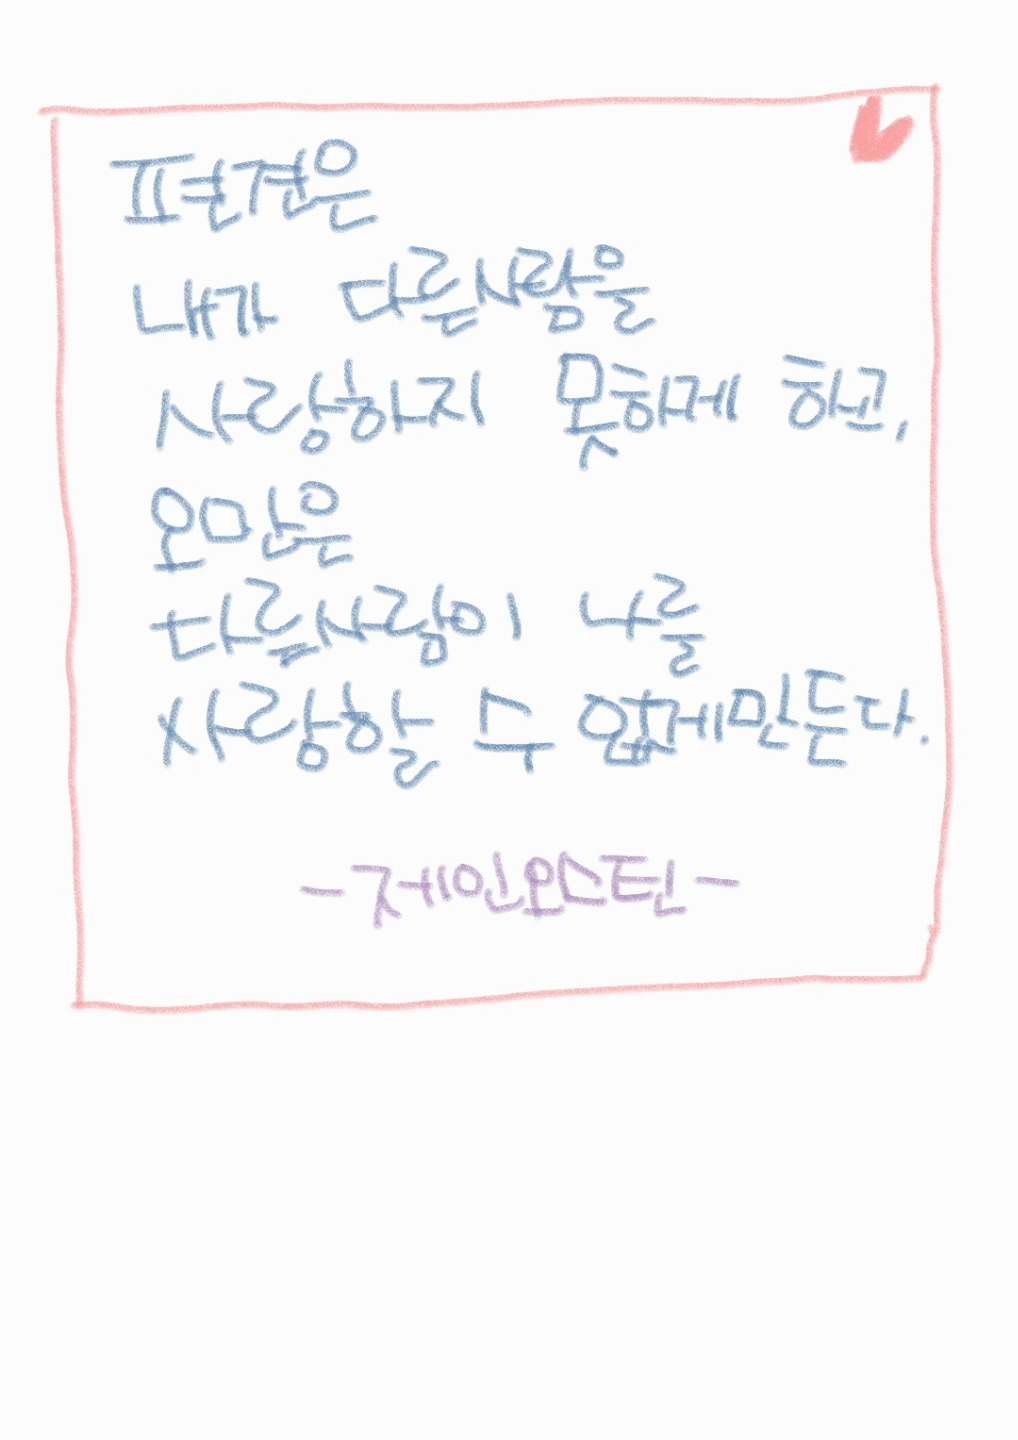 편견은
내가 다른사람을
사랑하지 못하게 하고,
오만은
다른사람이 나를
사랑할 수 없게만든다.
-제인오스틴-